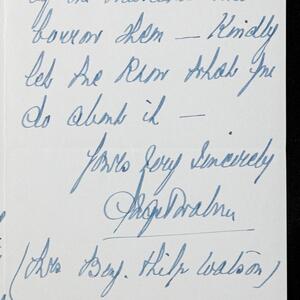 of the
borrow them — Kindly
let me know what you
do about it —
Yours very sincerely
(Mrs Benj. Philip Watson)